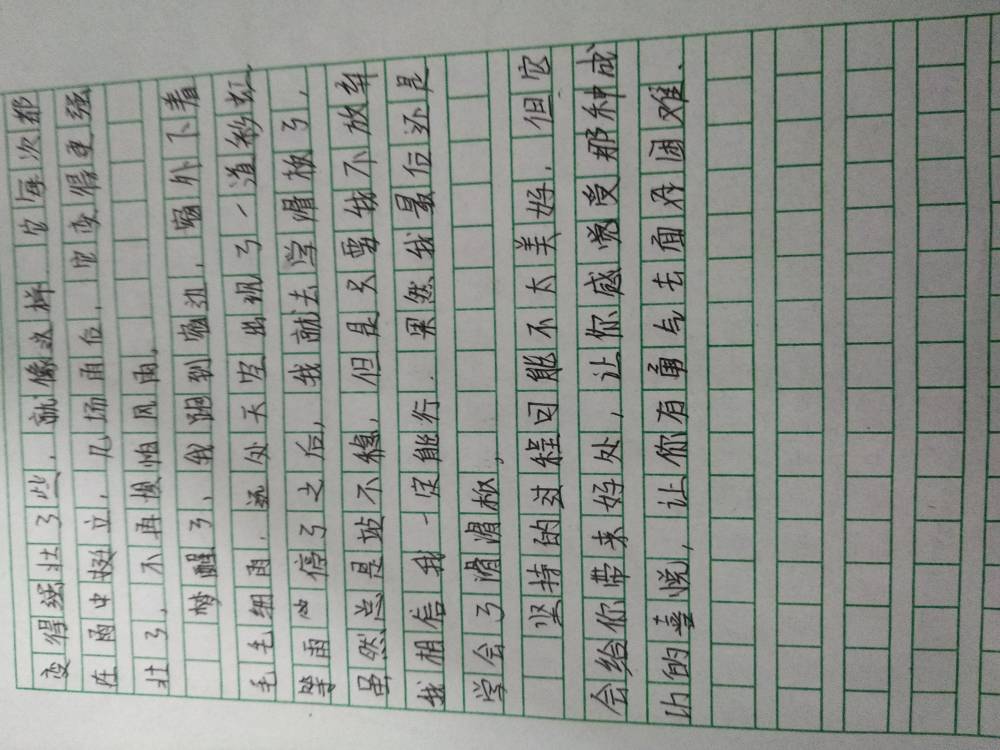 变得强壮了些，就像这样．它每次都
在雨中挺立，几场雨后，它变得更强
壮了，不再惧怕风雨。
梦醒了，我跑到窗边，窗外下着
毛毛细雨．远处天空出现了一道彩虹，
等雨停了之后，我就去学滑板了，
虽然总是站不稳，但是只要我不放弃
我相信我一定能行．果然我最后还是
学会了滑滑板，
坚持的过程可能不太美好．但它
会给你带来好处，让你感觉受那种成
功的喜悦，让你有勇气去面对困难．